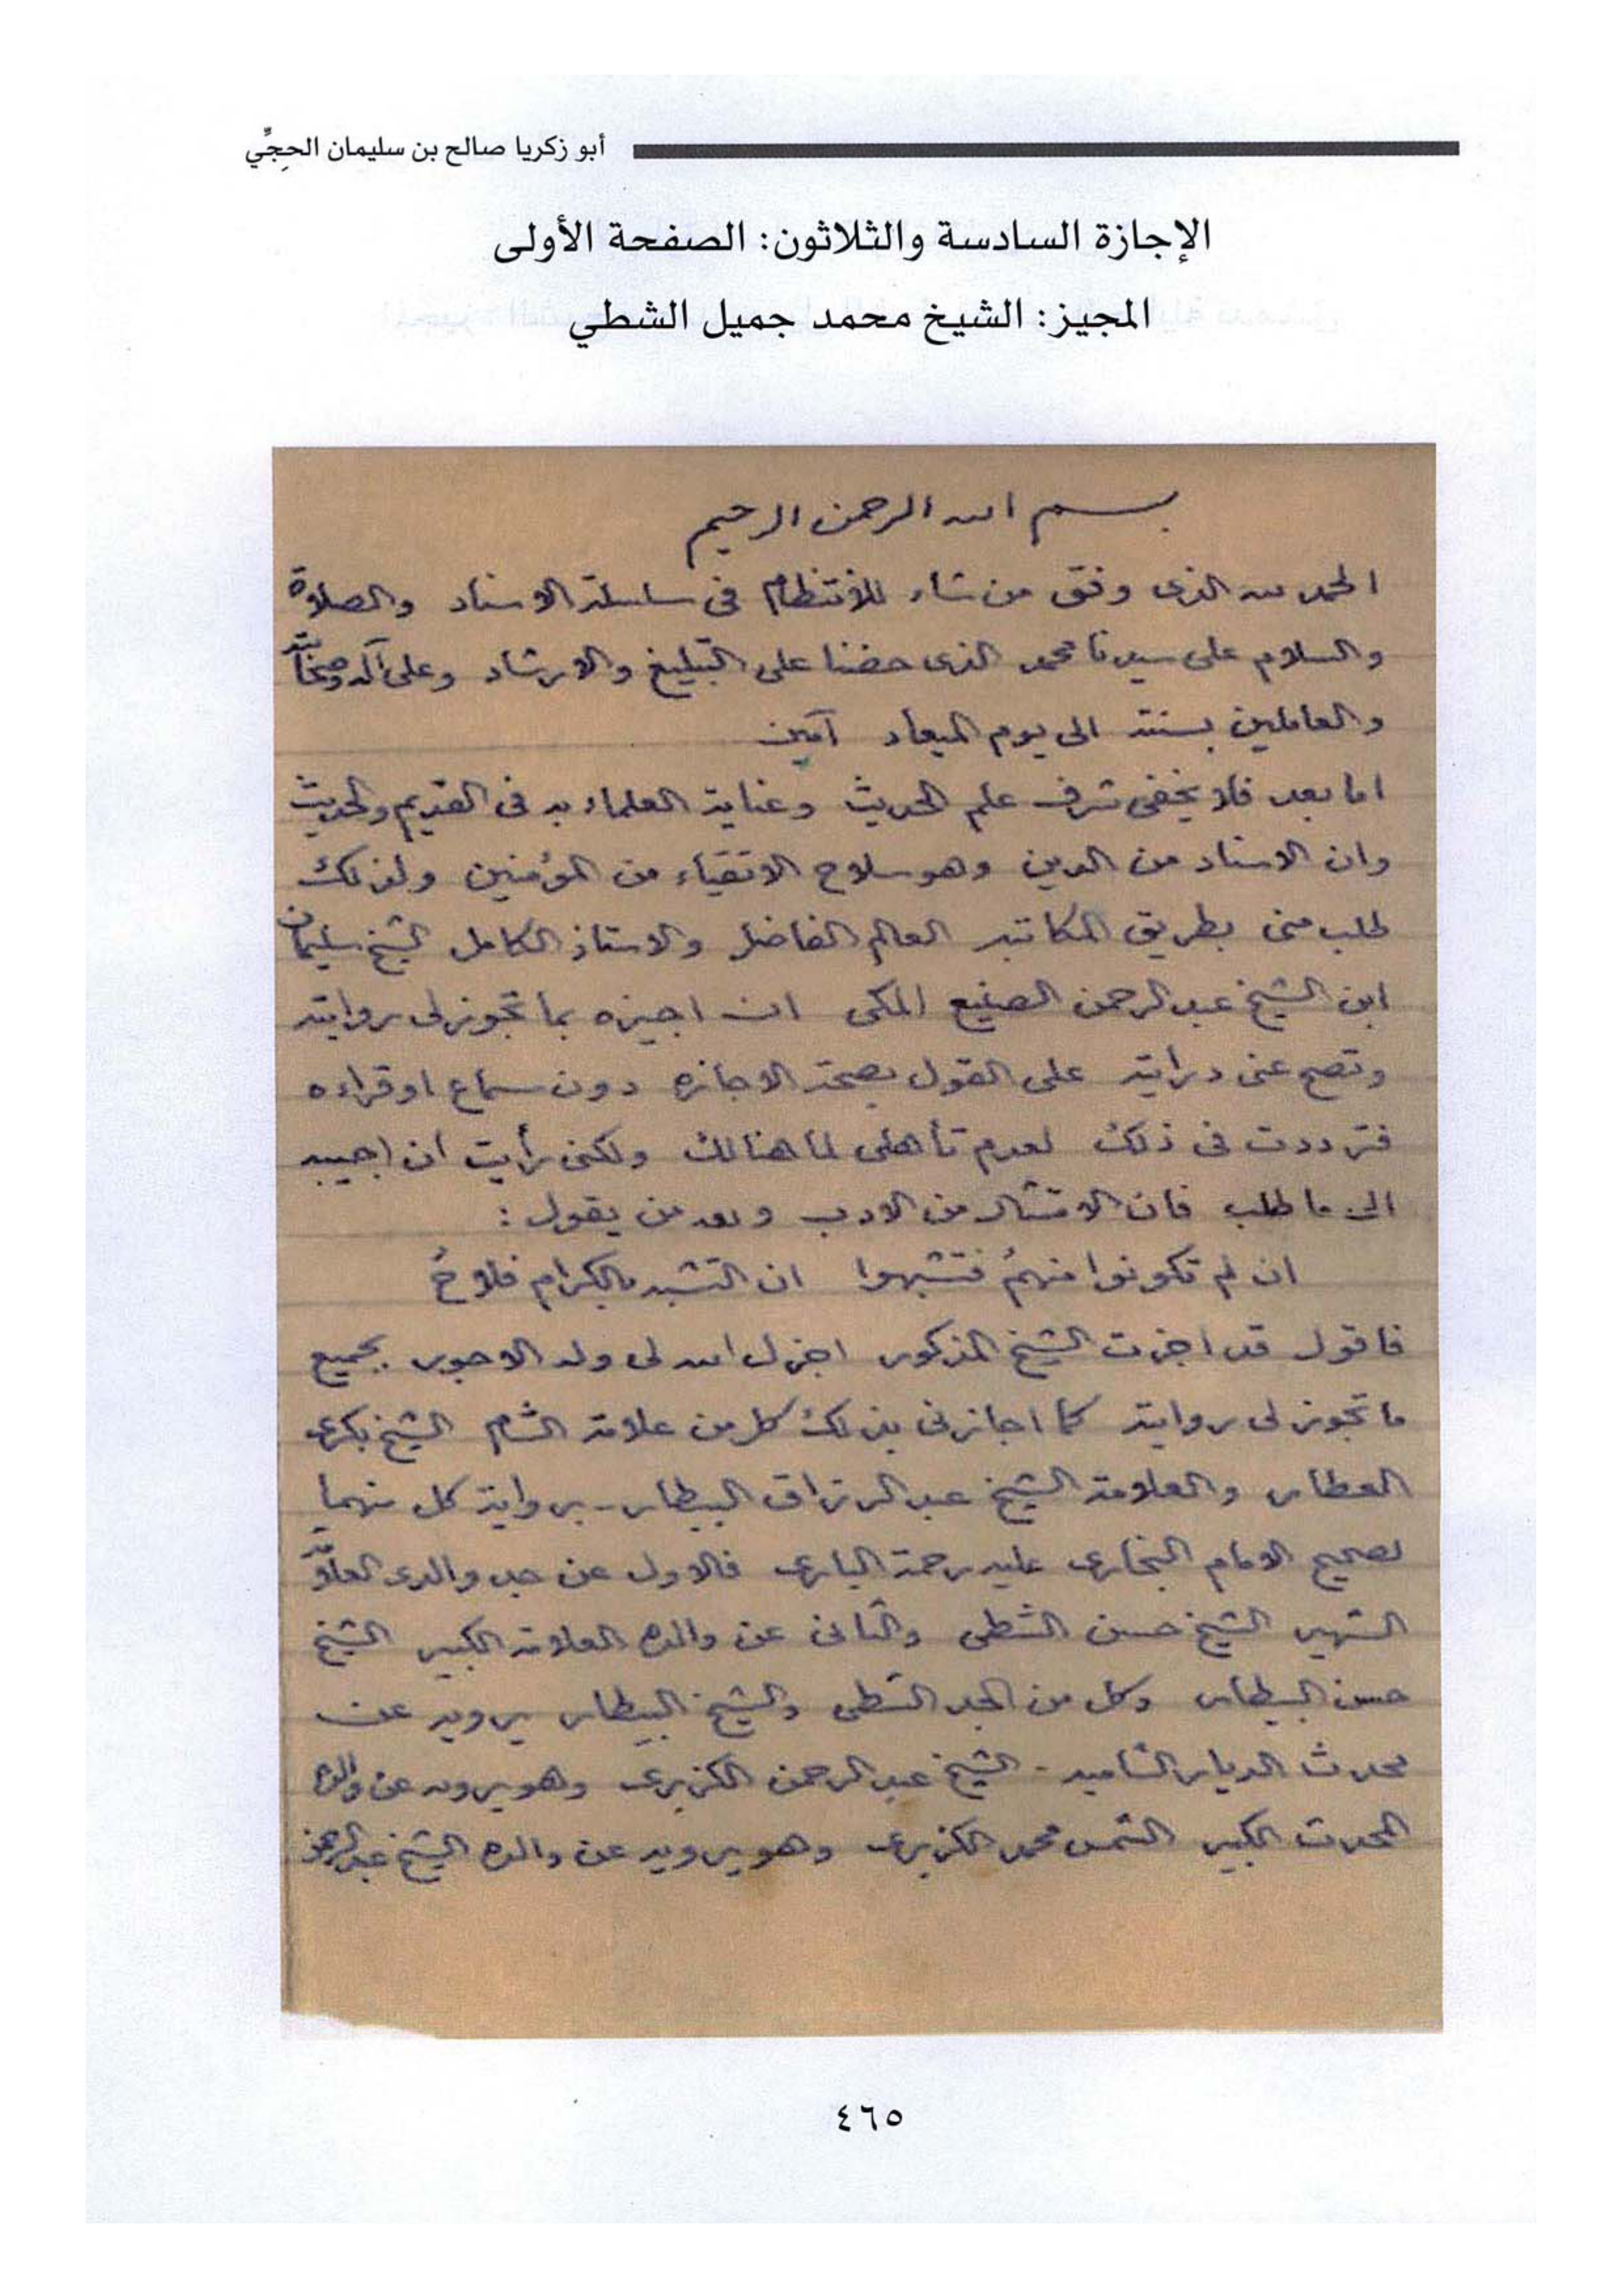 أبو زكريا صالح بن سليمان الحِجِّي
الإجازة السادسة والثلاثون: الصفحة الأولى
المجيز: الشيخ محمد جميل الشطي
بسم الله الرحمن الرحيم
الحمد لله الذى وفق من شاء للانتظام فى سلسلة الاسناد والصلاة
والسلام على سيدنا محمد الذى حضنا على التبليغ والارشاد وعلى آله وصحابته
والعاملين بسنته الى يوم الميعاد آمين
اما بعد فلا يخفى شرف علم الحديث وعناية العلماء به فى القديم والحديث
وان الاسناد من الدين وهو سلاح الاتقياء من المؤمنين ولذلك
طلب منى بطريق المكاتبه العالم الفاضل والاستاذ الكامل الشيخ سليمان
ابن الشيخ عبد الرحمن الصنيع المكى ان اجيزه بما تجوز لى روايته
وتصح عنى درايته على القول بصحة الاجازه دون سماع او قراءه
فترددت فى ذلك لعدم تأهلى لما هنالك ولكنى رأيت ان اجيبه
الى ما طلب فان الامتثال من الادب ولله من يقول :
ان لم تكونوا منهمُ فتشبهوا ان التشبه بالكرام فلاحُ
فاقول قد اجزت الشيخ المذكور اجزل الله لى وله الاجور بجميع
ما تجوز لى روايته كما اجازنى بذلك كل من علامة الشام الشيخ بكرى
العطار والعلامة الشيخ عبد الرزاق البيطار - برواية كل منهما
لصحيح الامام البخارى عليه رحمة البارى فالاول عن جد والدى العلامة
الشهير الشيخ حسن الشطى والثانى عن والده العلامة الكبير الشيخ
حسن البيطار وكل من الجد الشطى والشيخ البيطار يرويه عن
محدث الديار الشاميه - الشيخ عبد الرحمن الكزبرى وهو يرويه عن والده
المحدث الكبير الشمس محمد الكزبرى وهو يرويه عن والده الشيخ عبد الرحمن
٤٦٥